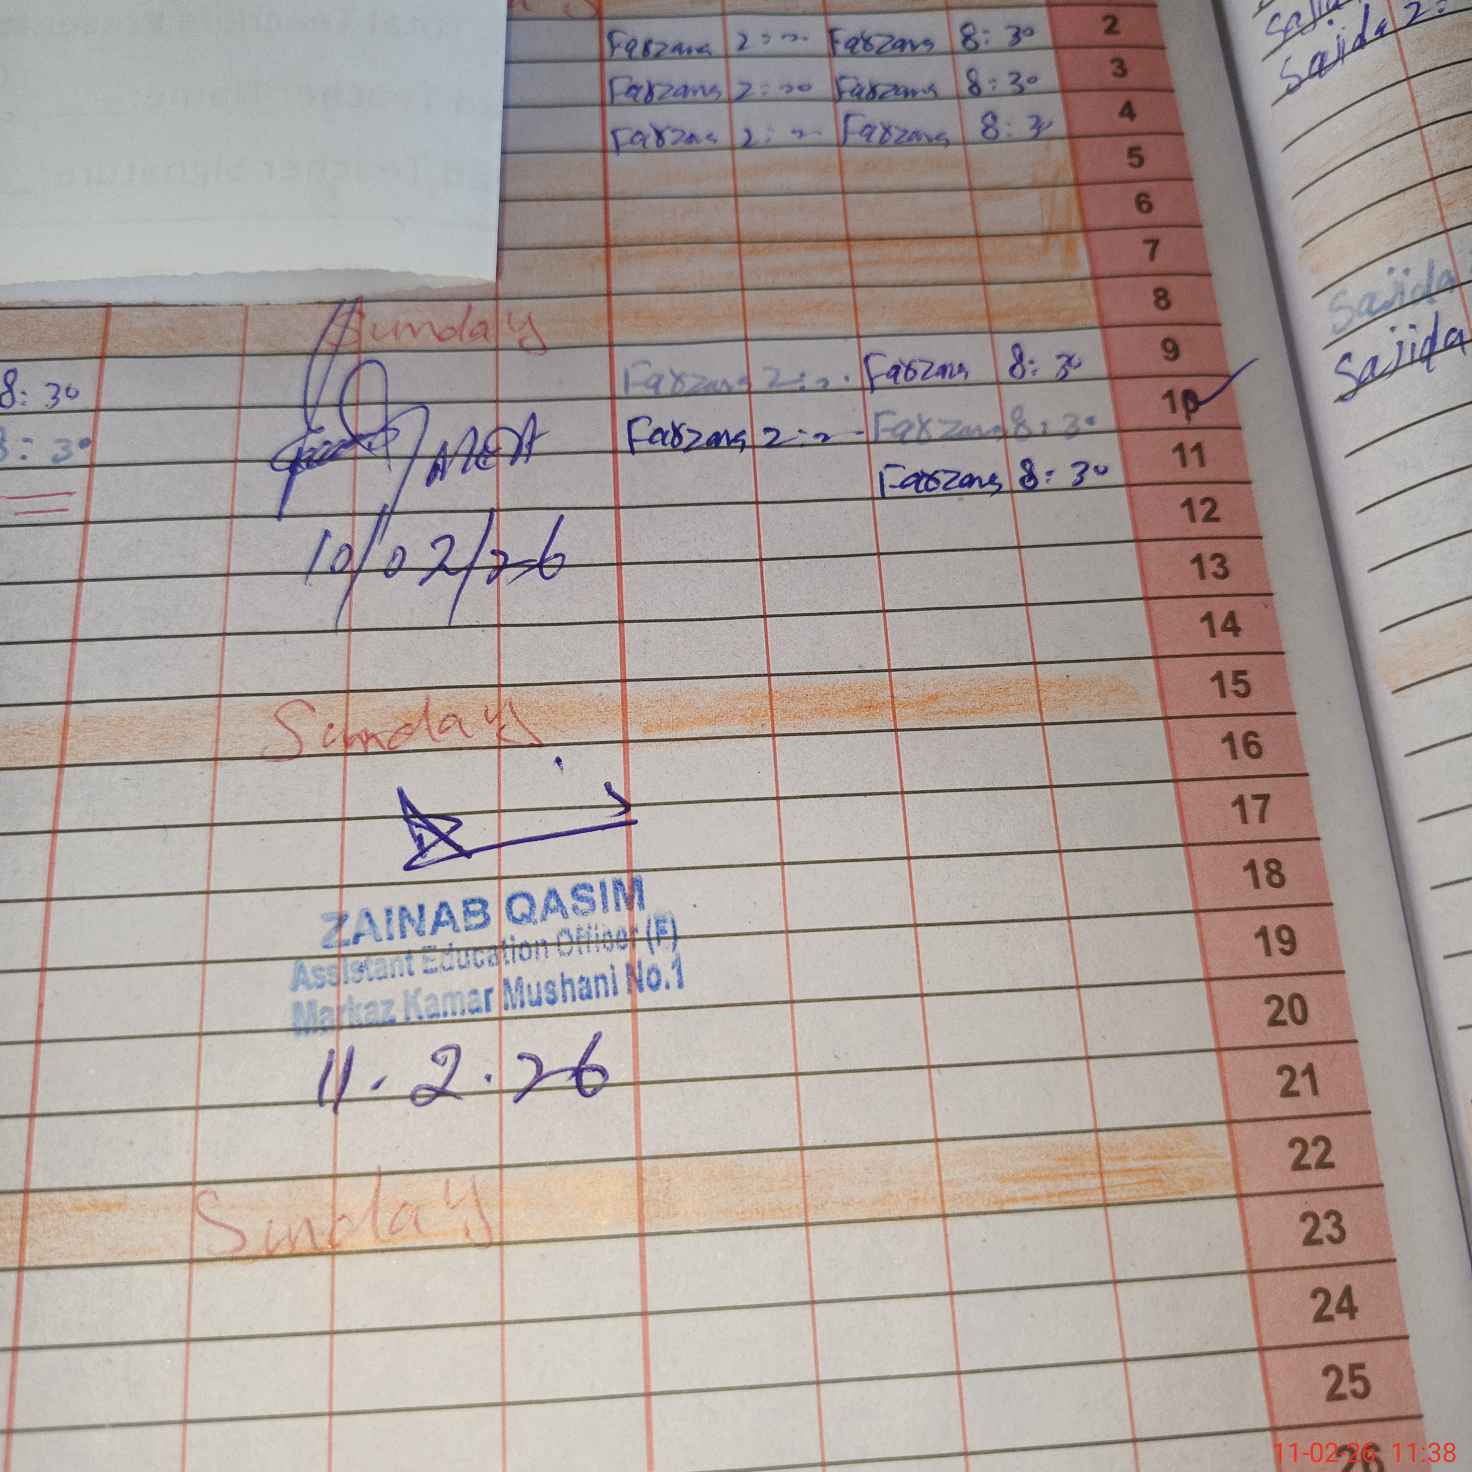 Farzana 2:00 Farzana 8:30 2
Farzana 2:00 Farzana 8:30 3
Farzana 2:00 Farzana 8:30 4
5
6
7
Sunday 8
Farzana 2:00 Farzana 8:30 9
8:30 Farzana 2:00 Farzana 8:30 10
8:30 MEA Farzana 8:30 11
12
10/02/26 13
14
Sunday 15
16
17
18
ZAINAB QASIM
Assistant Education Officer (F) 19
Markaz Kamar Mushani No.1
20
11.2.26 21
Sunday 22
23
24
25
26
Sajida 2:
Sajida
Sajida
11-02-26 11:38